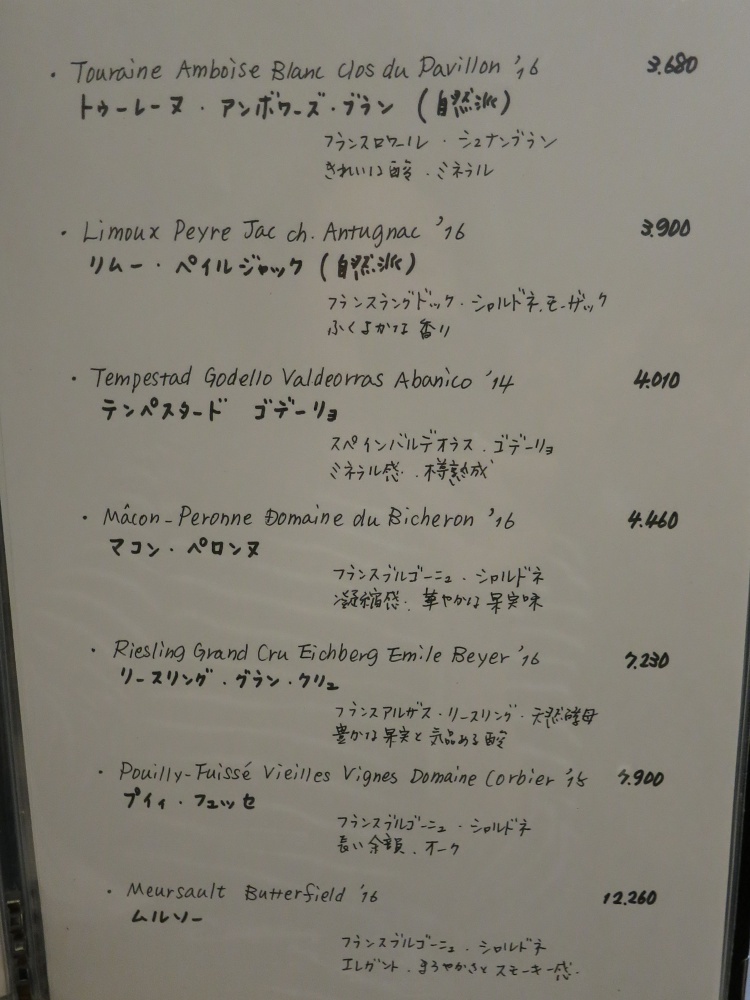 ・Touraine Amboise Blanc Clos du Pavillon '16 3.680
トゥーレーヌ・アンボワーズ・ブラン (自然派)
フランスロワール・シュナンブラン
きれいな酸・ミネラル
・Limoux Peyre Jac ch. Antugnac '16 3.900
リムー・ペイルジャック (自然派)
フランスラングドック・シャルドネ.モーザック
ふくよかな香り
・Tempestad Godello Valdeorras Abanico '14 4.010
テンペスタード ゴデーリョ
スペインバルデオラス.ゴデーリョ
ミネラル感.樽熟成
・Mâcon-Peronne Domaine du Bicheron '16 4.460
マコン・ペロンヌ
フランスブルゴーニュ・シャルドネ
凝縮感.華やかな果実味
・Riesling Grand Cru Eichberg Emile Beyer '16 7.230
リースリング・グラン・クリュ
フランスアルザス・リースリング・天然酵母
豊かな果実と気品ある酸
・Pouilly-Fuissé Vieilles Vignes Domaine Corbier '15 7.900
プイィ・フュッセ
フランスブルゴーニュ・シャルドネ
長い余韻.オーク
・Meursault Butterfield '16 12.260
ムルソー
フランスブルゴーニュ・シャルドネ
エレガント.まろやかさとスモーキー感.